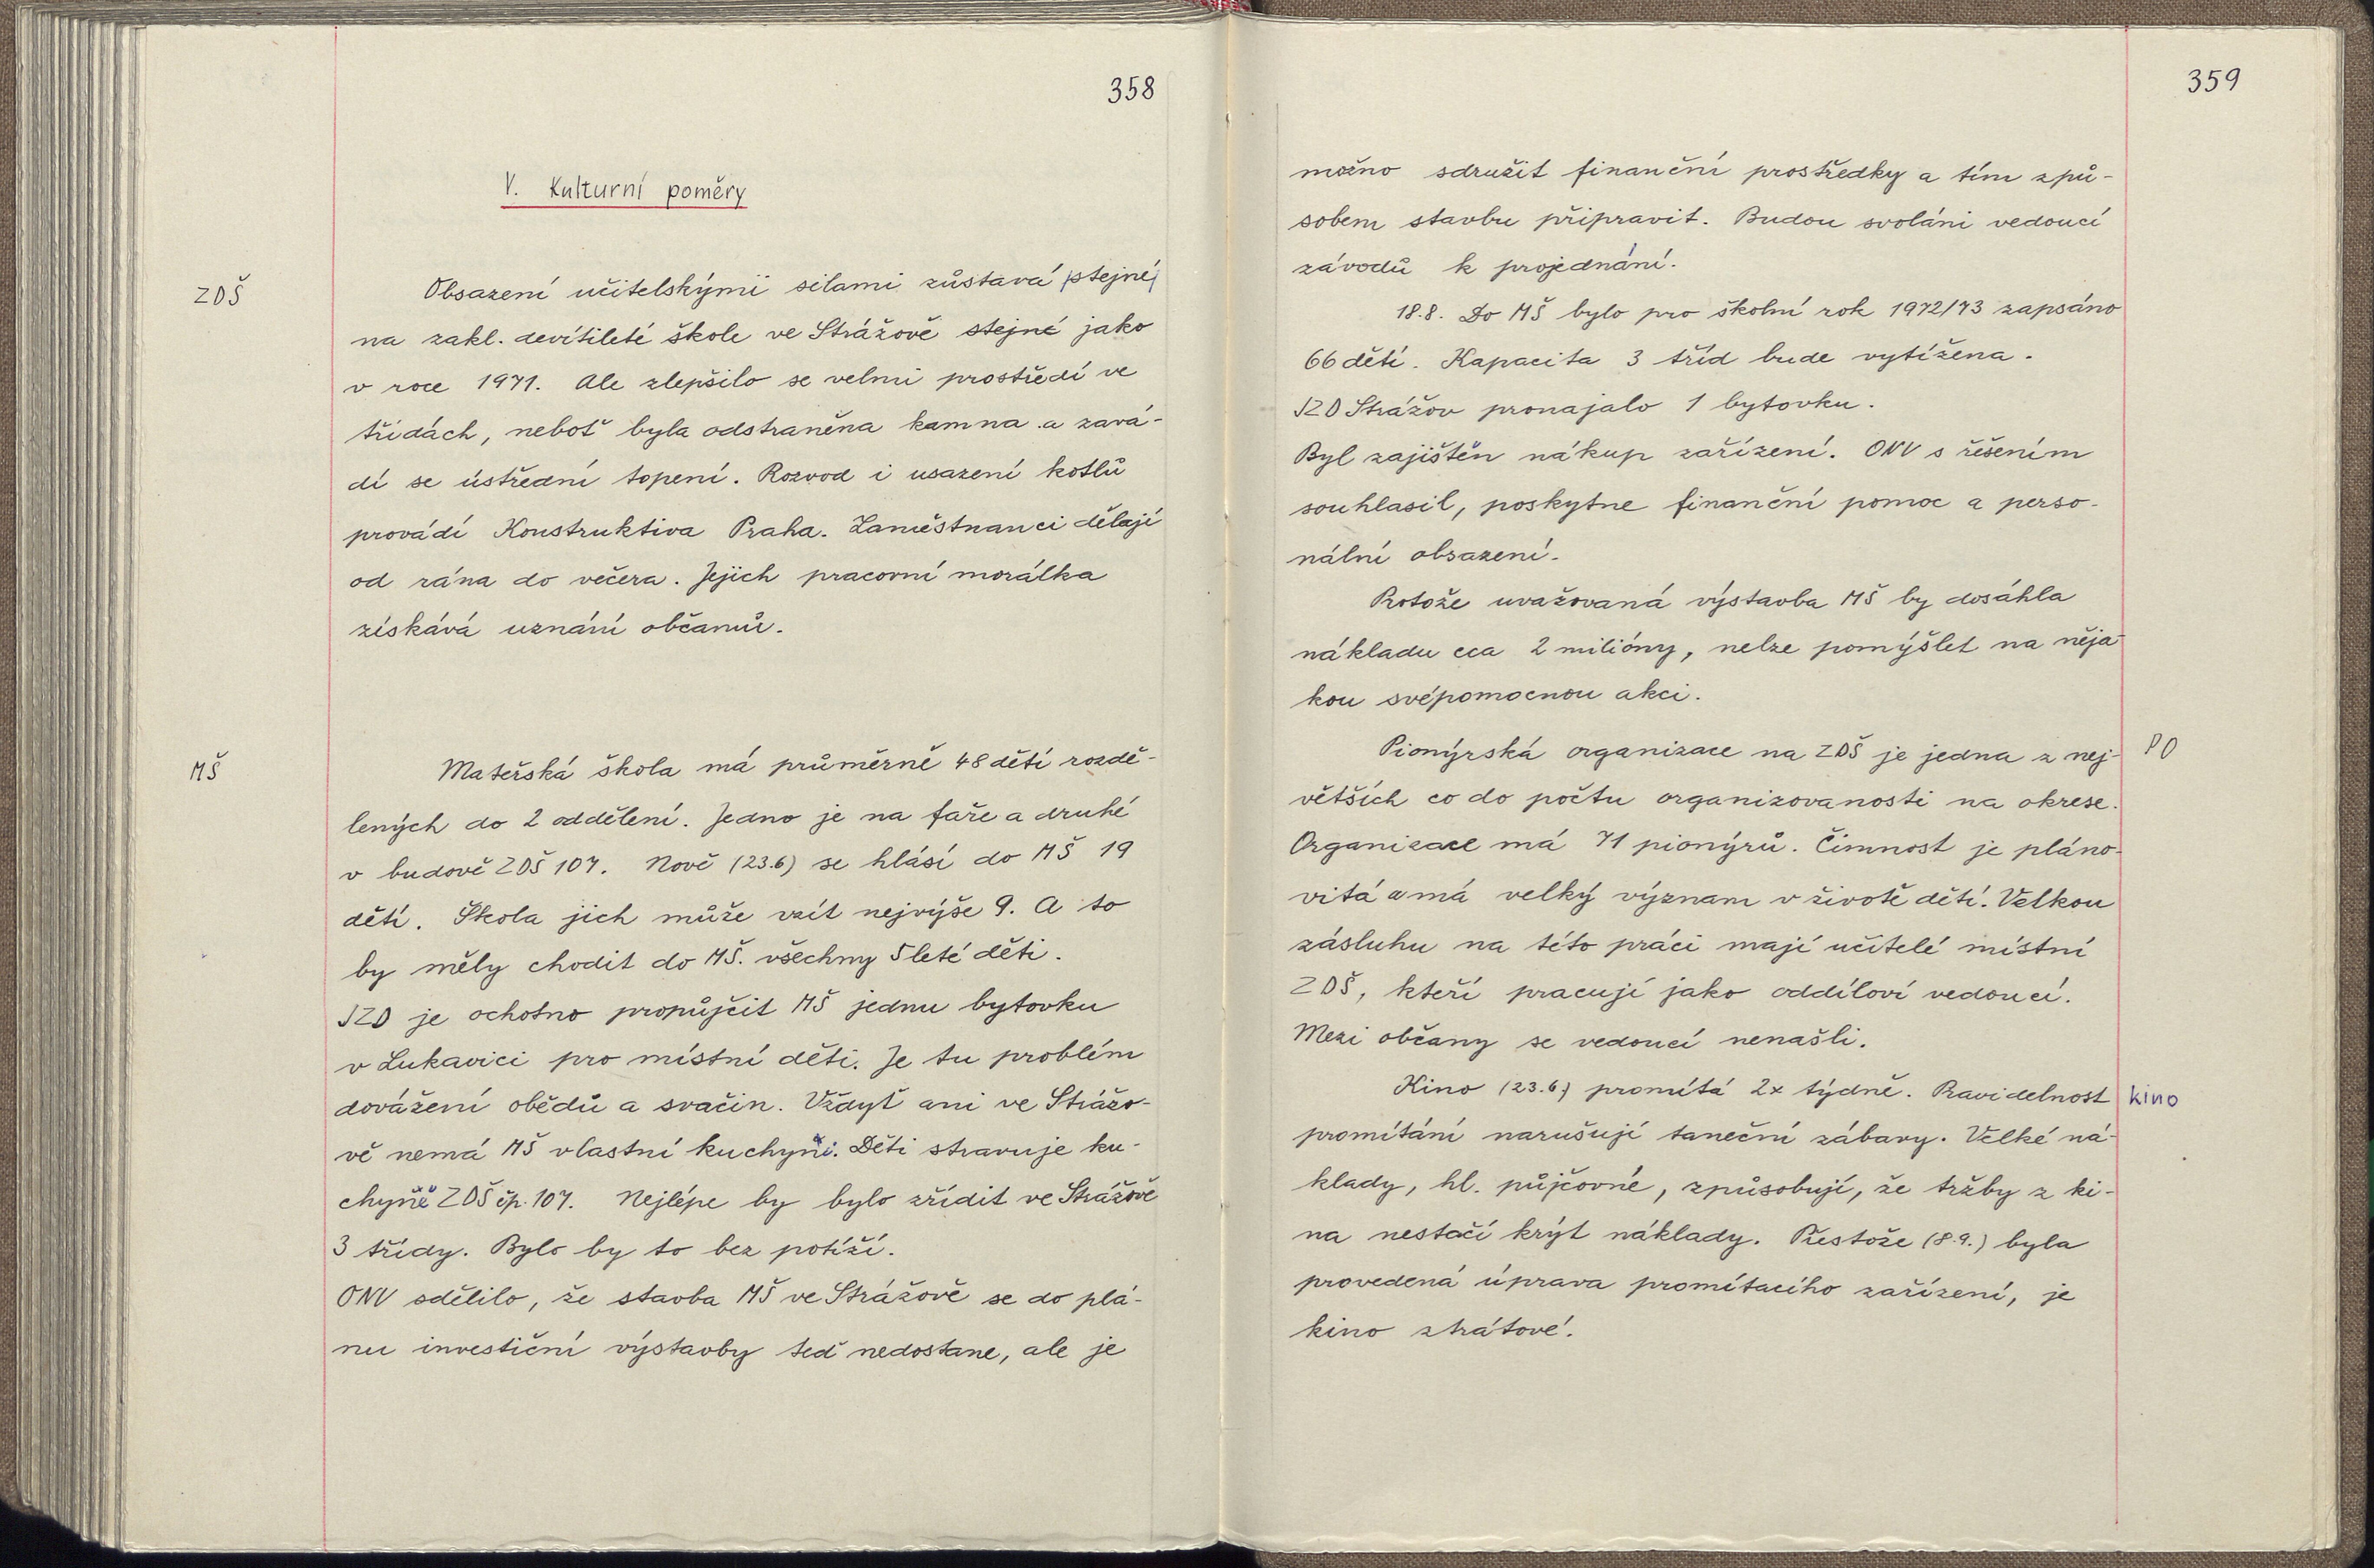 358
V. Kulturní poměry
ZDŠ
Obsazení učitelskými silami zůstává (stejné)
na zákl. devítileté škole ve Strážově stejné jako
v roce 1971. Ale zlepšilo se velmi prostředí ve
třídách, neboť byla odstraněna kamna a zavá-
dí se ústřední topení. Rozvod i usazení kotlů
provádí Konstruktiva Praha. Zaměstnanci dělají
od rána do večera. Jejich pracovní morálka
získává uznání občanů.
MŠ
Mateřská škola má průměrně 48 dětí rozdě-
lených do 2 oddělení. Jedno je na faře a druhé
v budově ZDŠ 107. Nově (23.6) se hlásí do MŠ 19
dětí. Škola jich může vzít nejvýše 9. A to
by měly chodit do MŠ. všechny 5leté děti.
JZD je ochotno propůjčit MŠ jednu bytovku
v Lukavici pro místní děti. Je tu problém
dovážení obědů a svačin. Vždyť ani ve Strážo-
vě nemá MŠ vlastní kuchyni. Děti stravuje ku-
chyně ZDŠ čp. 107. Nejlépe by bylo zřídit ve Strážově
3 třídy. Bylo by to bez potíží.
ONV sdělilo, že stavba MŠ ve Strážově se do plá-
nu investiční výstavby teď nedostane, ale je
359
možno sdružit finanční prostředky a tím způ-
sobem stavbu připravit. Budou svoláni vedoucí
závodů k projednání.
18.8. Do MŠ bylo pro školní rok 1972/73 zapsáno
66 dětí. Kapacita 3 tříd bude vytížena.
JZD Strážov pronajalo 1 bytovku.
Byl zajištěn nákup zařízení. ONV s řešením
souhlasil, poskytne finanční pomoc a perso-
nální obsazení.
Protože uvažovaná výstavba MŠ by dosáhla
nákladu cca 2 milióny, nelze pomýšlet na něja-
kou svépomocnou akci.
Pionýrská organizace na ZDŠ je jedna z nej-
PO
větších co do počtu organizovanosti na okrese.
Organizace má 71 pionýrů. Činnost je pláno-
vitá a má velký význam v životě dětí. Velkou
zásluhu na této práci mají učitelé místní
ZDŠ, kteří pracují jako oddíloví vedoucí.
Mezi občany se vedoucí nenašli.
Kino (23.6.) promítá 2x týdně. Pravidelnost
kino
promítání narušují taneční zábavy. Velké ná-
klady, hl. půjčovné, způsobují, že tržby z ki-
na nestačí krýt náklady. Přestože (8.9.) byla
provedená úprava promítacího zařízení, je
kino ztrátové.